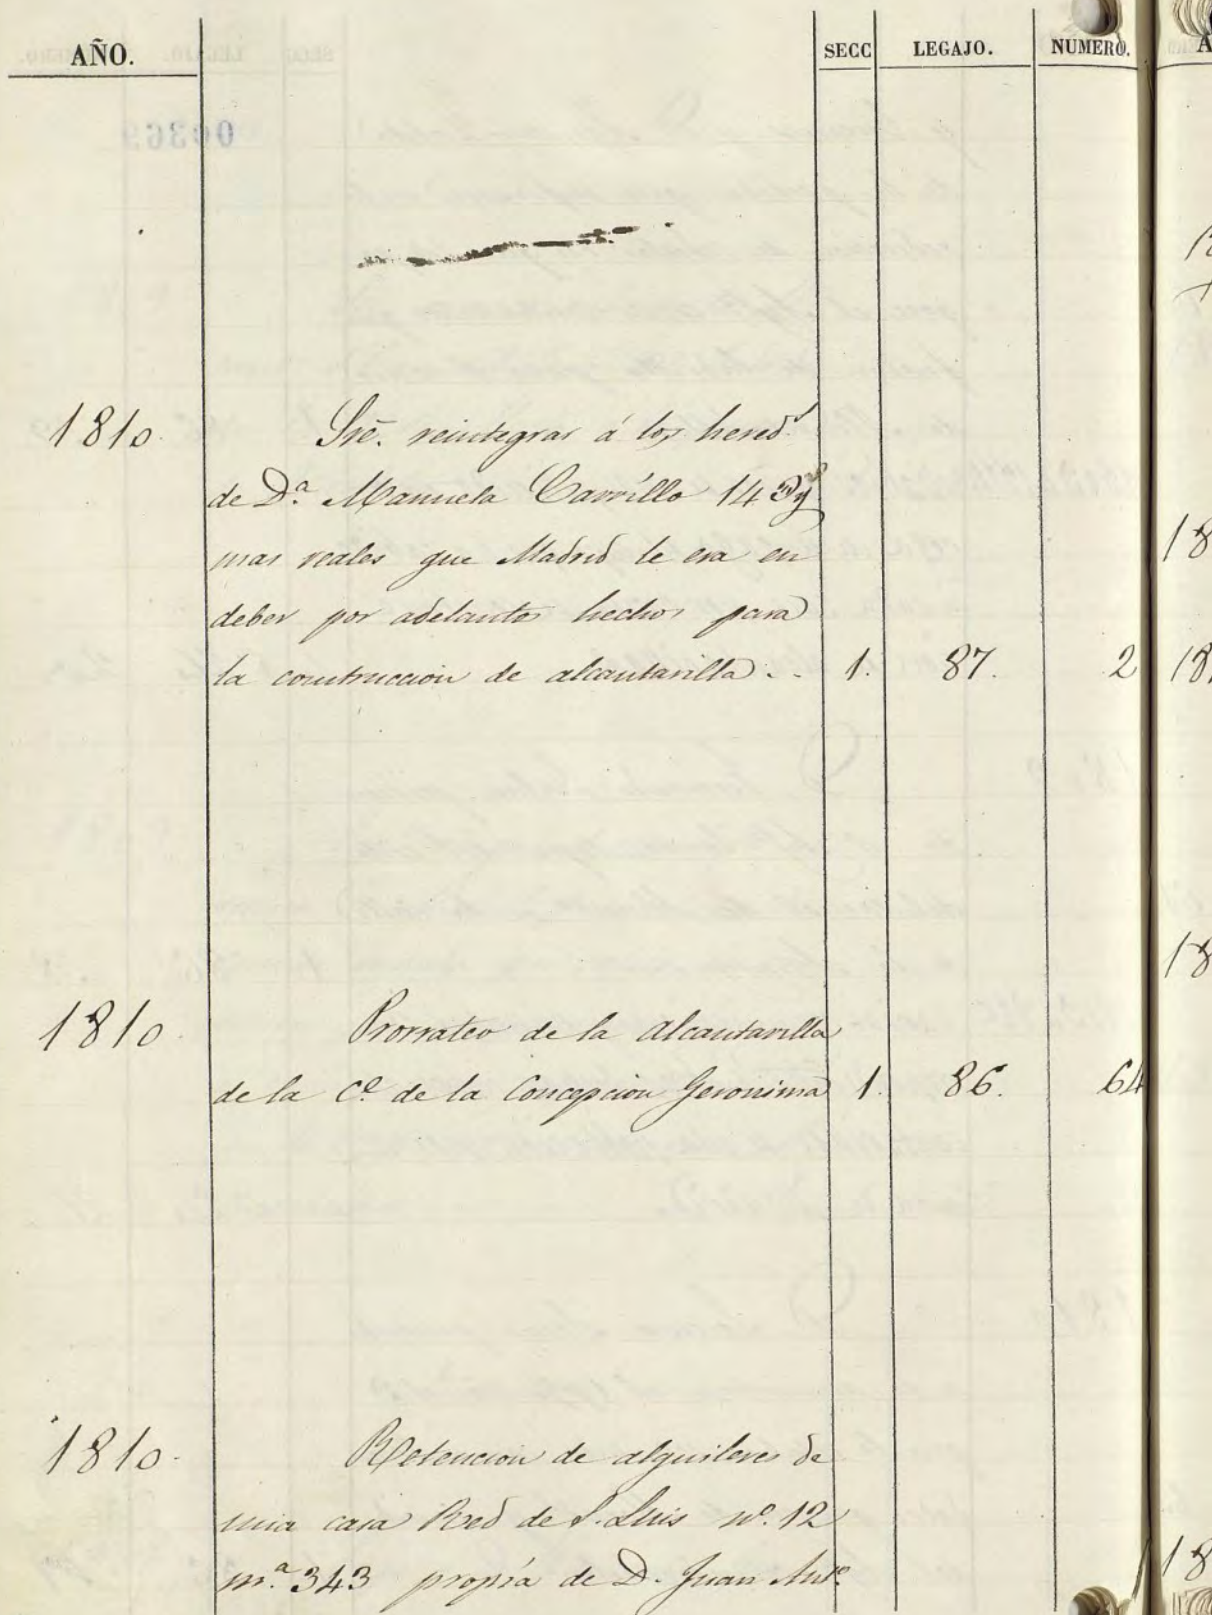 AÑO. SECC LEGAJO. NUMERO.
1810. Sre. reintegrar á los hered.s
de D.a Manuela Carrillo 14 y
mas reales que Madrid le era en
deber por adelantos hechos para
la construccion de alcantarilla . . 1. 87. 2
1810 Prorrateo de la Alcantarilla
de la C.e de la Concepcion Geronima 1. 86. 64
1810. Retencion de alquileres de
una casa Red de S. Luis nº. 12
m.a 343 propia de D. Juan Ant.o